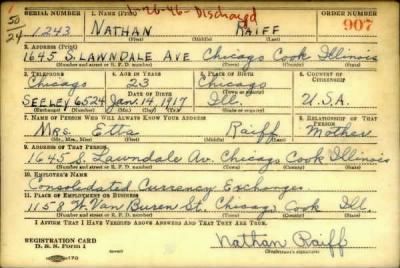 1-26-46 - Discharged
1
50
24
SERIAL NUMBER 1. NAME (Print) ORDER NUMBER
1243 NATHAN RAIFF 907
(First) (Middle) (Last)
2. ADDRESS (Print)
1645 S. LAWNDALE AVE Chicago Cook Illinois
(Number and street or R. F. D. number) (Town) (County) (State)
3. TELEPHONE 4. AGE IN YEARS 5. PLACE OF BIRTH 6. COUNTRY OF CITIZENSHIP
Chicago 23 Chicago
DATE OF BIRTH (Town or county)
SEELEY 6524 Jan. 14, 1917 Ill. U.S.A.
(Exchange) (Number) (Mo.) (Day) (Yr.) (State or country)
7. NAME OF PERSON WHO WILL ALWAYS KNOW YOUR ADDRESS 8. RELATIONSHIP OF THAT PERSON
Mrs. Etta Raiff Mother
(Mr., Mrs., Miss) (First) (Middle) (Last)
9. ADDRESS OF THAT PERSON
1645 S. Lawndale Av. Chicago Cook Illinois
(Number and street or R. F. D. number) (Town) (County) (State)
10. EMPLOYER'S NAME
Consolidated Currency Exchanges
11. PLACE OF EMPLOYMENT OR BUSINESS
1158 W. Van Buren St. Chicago Cook Ill.
(Number and street or R. F. D. number) (Town) (County) (State)
I AFFIRM THAT I HAVE VERIFIED ABOVE ANSWERS AND THAT THEY ARE TRUE.
REGISTRATION CARD
D. S. S. Form 1 Nathan Raiff
(Registrant's signature)